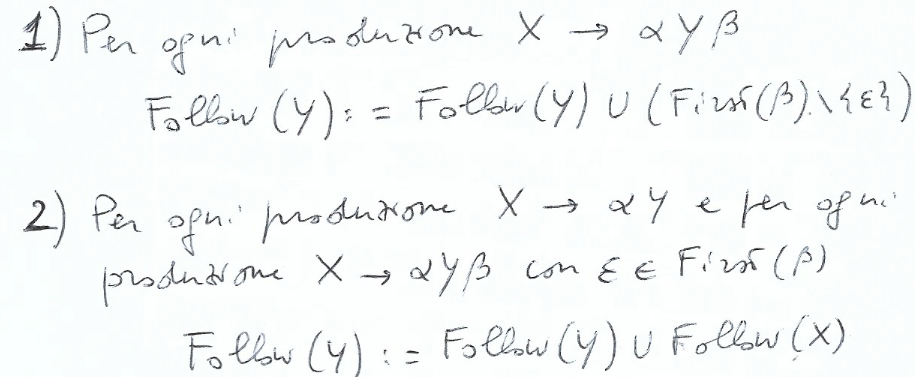 1) Per ogni produzione X → αYβ
Follow(Y) := Follow(Y) ∪ (First(β)\{ε})
2) Per ogni produzione X → αY e per ogni
produzione X → αYβ con ε ∈ First(β)
Follow(Y) := Follow(Y) ∪ Follow(X)